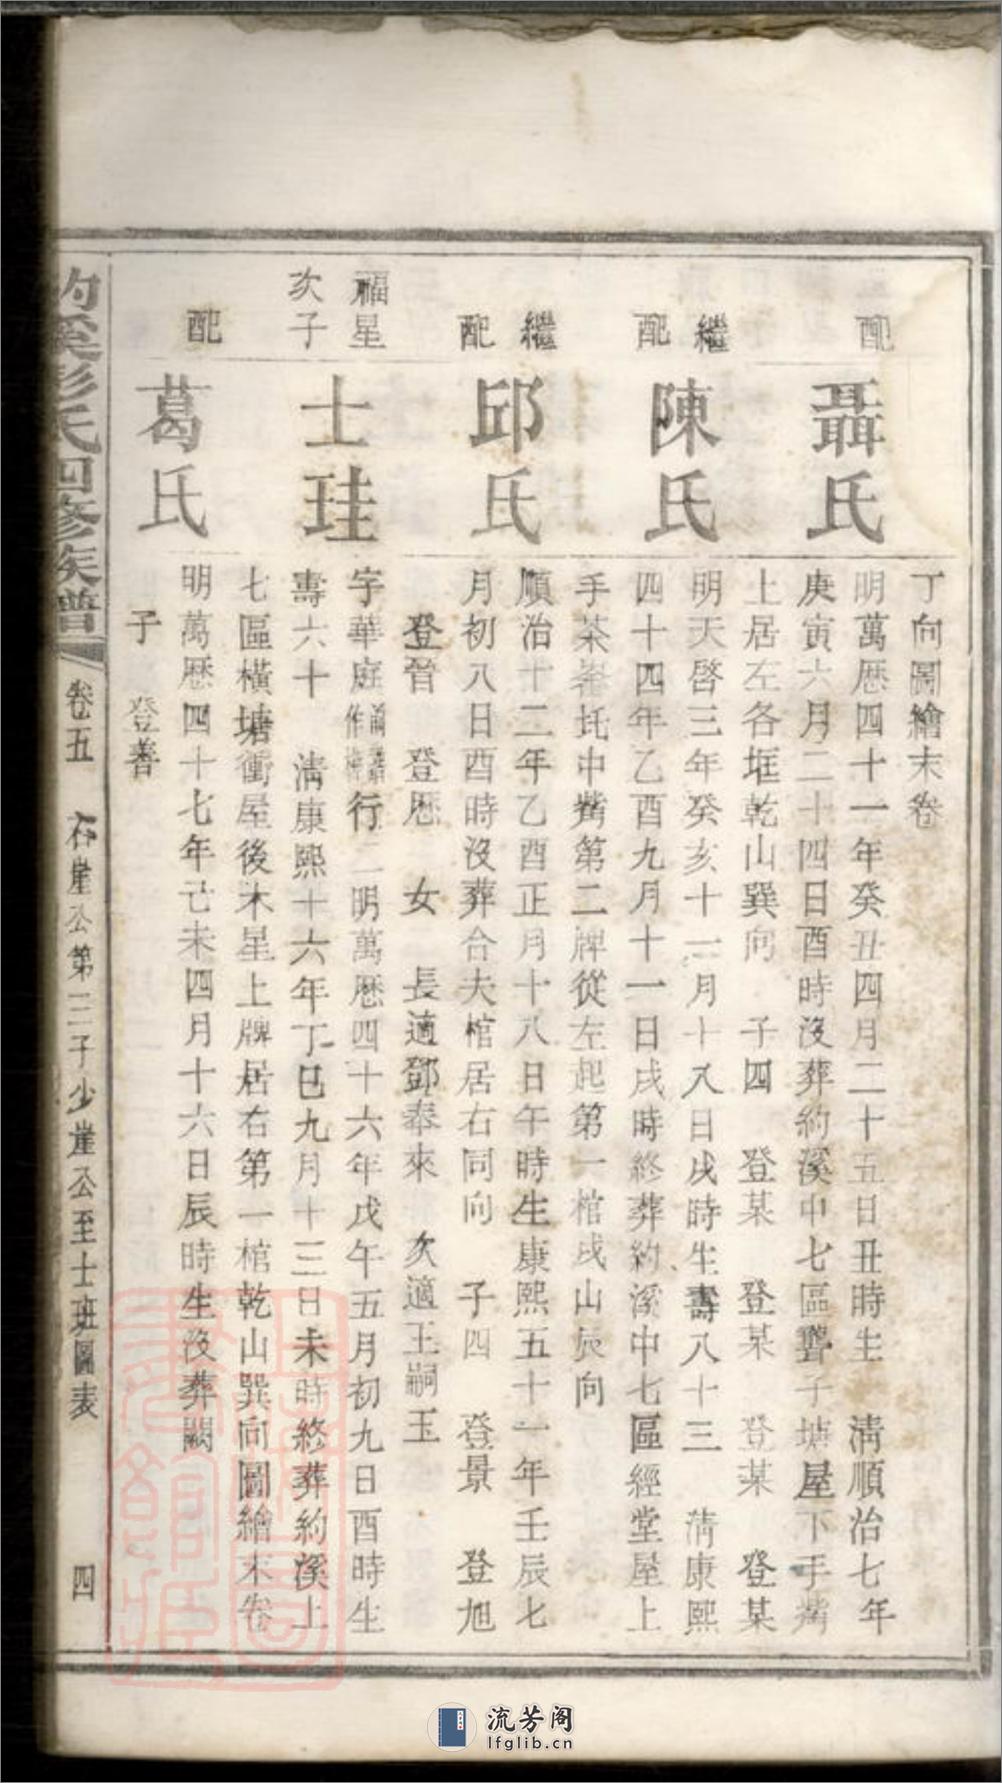 丁向圖繪末卷
配
聶氏
明萬歷四十一年癸丑四月二十五日丑時生 清順治七年
庚寅六月二十四日酉時沒葬約溪中七區聾子塘屋下手嘴
上居左各堆乾山巽向 子四 登某 登某 登某 登某
繼配
陳氏
明天啓三年癸亥十二月十八日戌時生壽八十三 清康熙
四十四年乙酉九月十一日戌時終葬約溪中七區經堂屋上
手茶崙托中嘴第二牌從左起第一棺戌山辰向
繼配
邱氏
順治十二年乙酉正月十八日午時生康熙五十一年壬辰七
月初八日酉時沒葬合夫棺居右同向 子四 登景 登旭
登晉 登歷 女 長適鄧奉來 次適王嗣玉
福星次子
士珪
字華庭行二明萬歷四十六年戊午五月初九日酉時生
壽六十 清康熙十六年丁巳九月十三日未時終葬約溪上
七區橫塘衝屋後木星上牌居右第一棺乾山巽向圖繪末卷
配
葛氏
明萬歷四十七年己未四月十六日辰時生沒葬闕
子 登善
約溪彭氏四修族譜 卷五 石崖公第三子少崖公至士班圖表 四
流芳阁
lfglib.cn